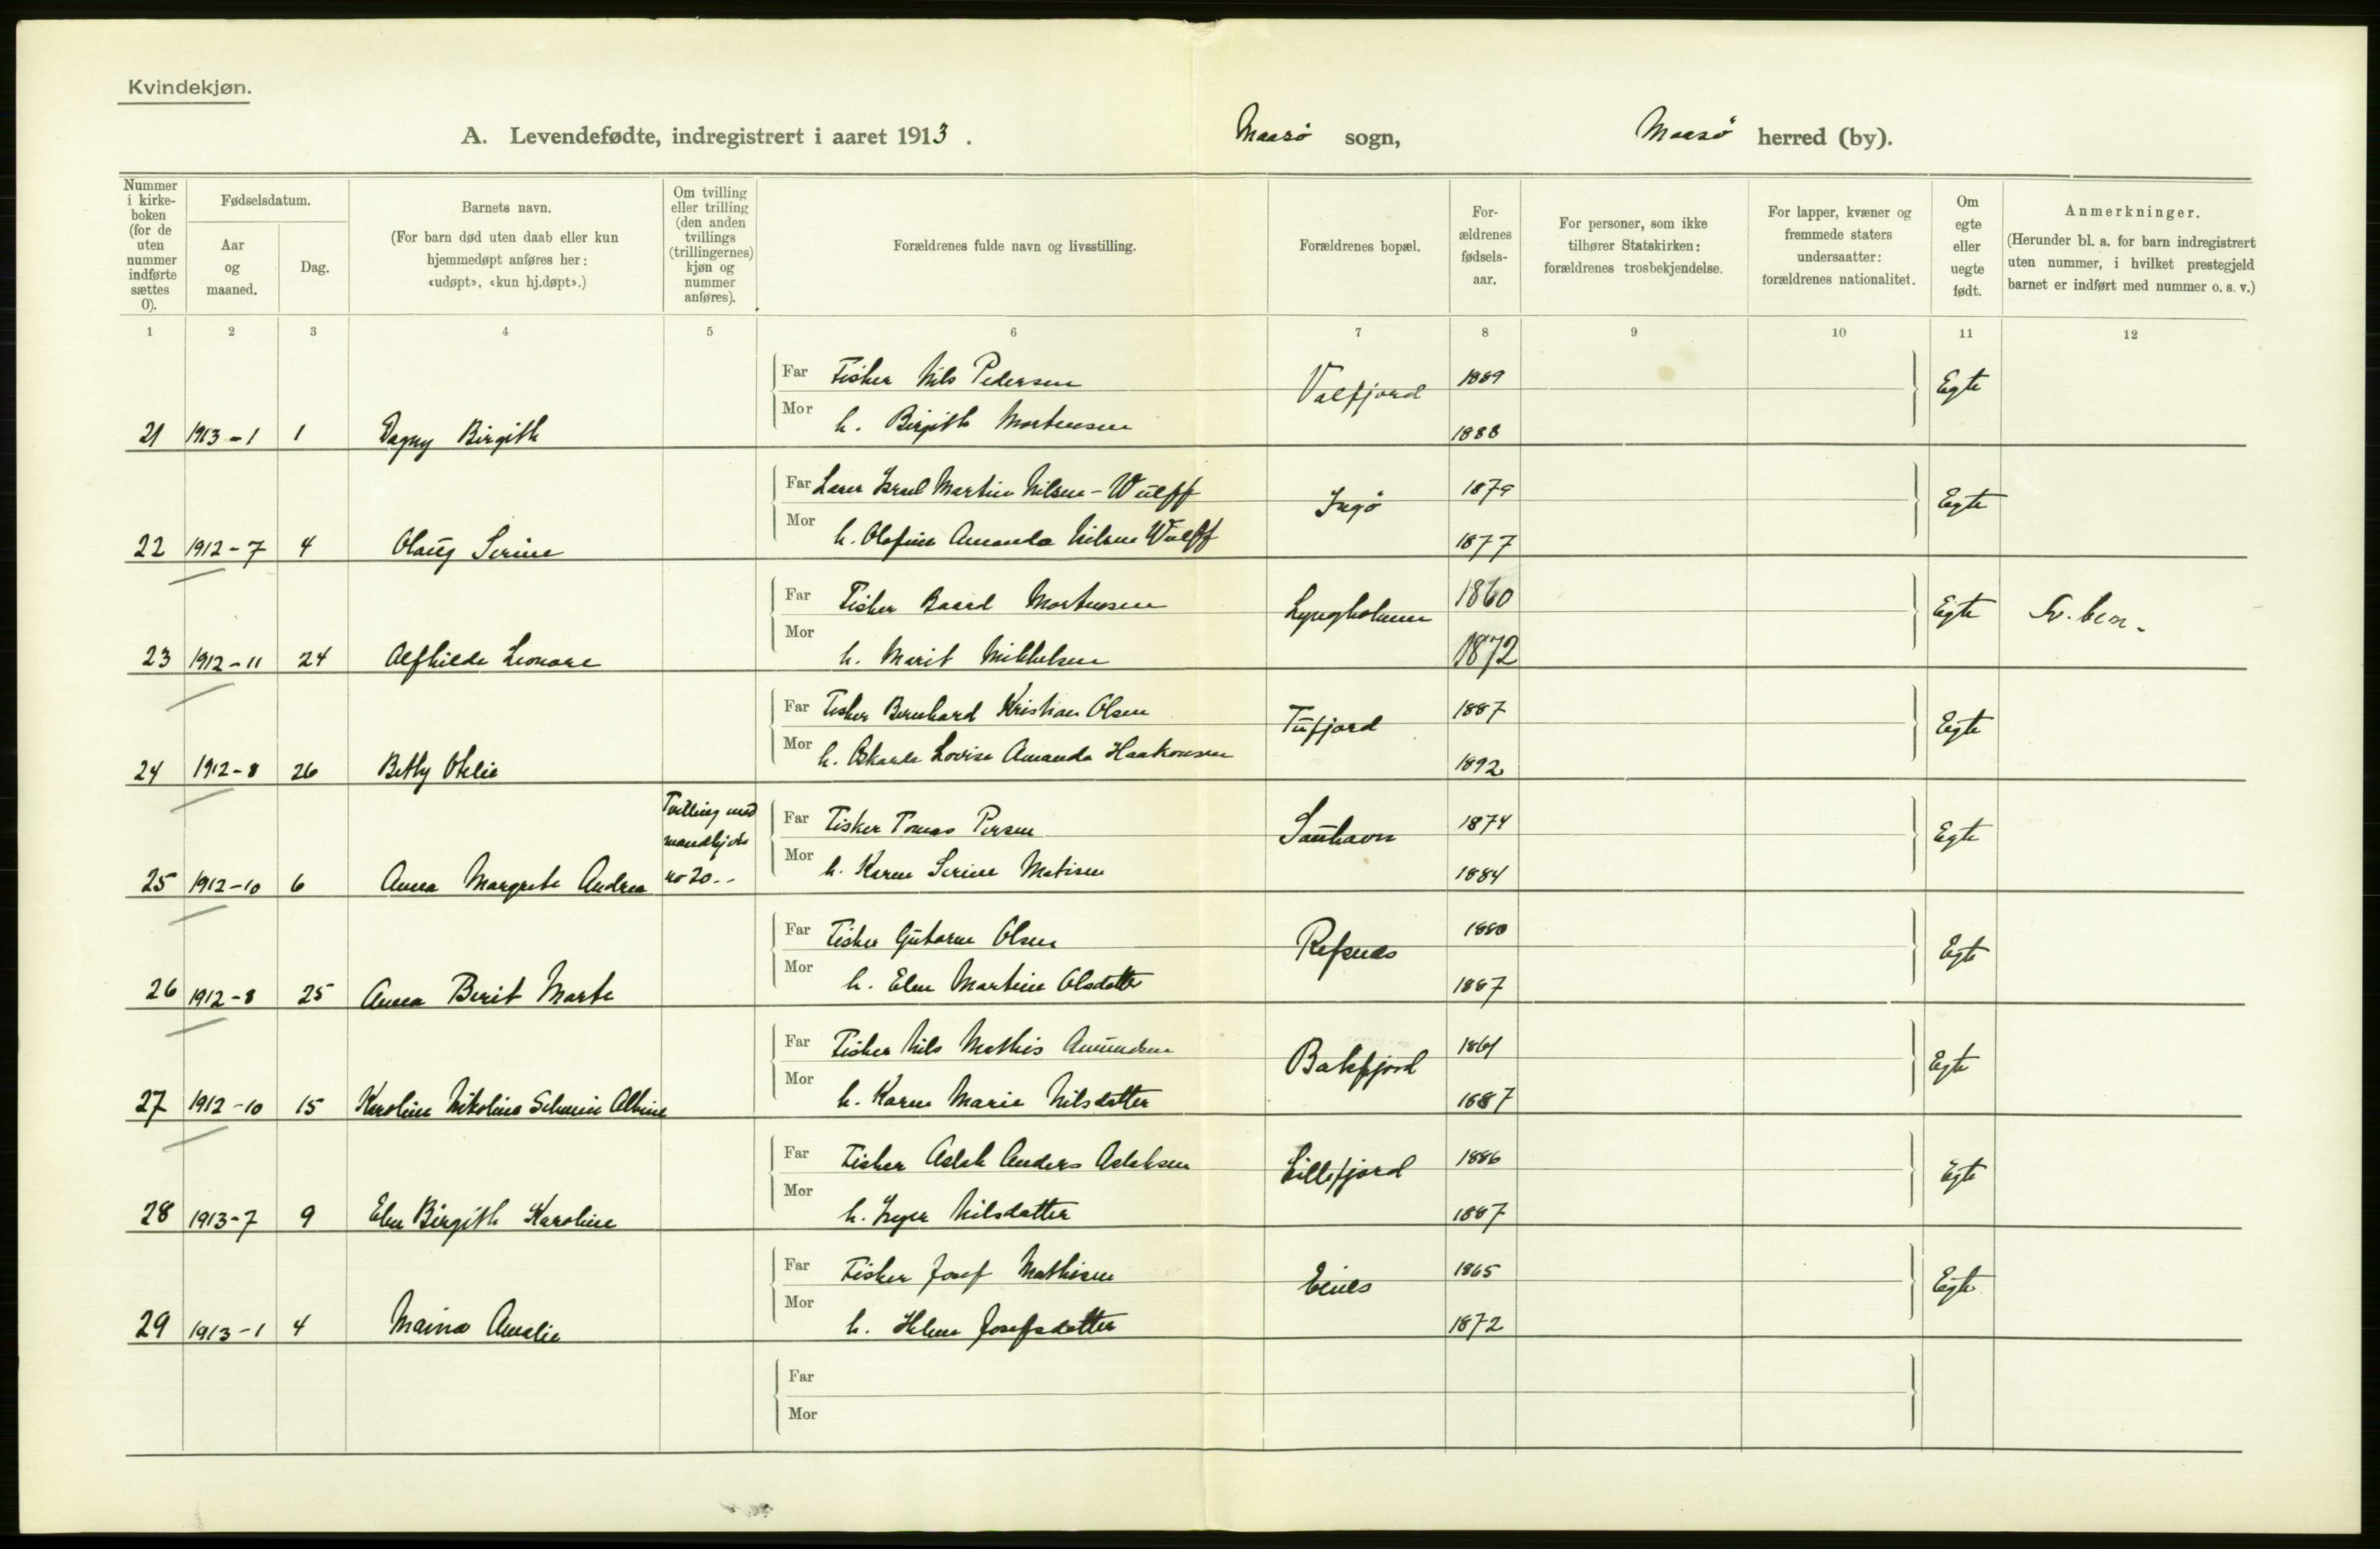 Kvindekjøn.
A. Levendefødte, indregistrert i aaret 1913. Maasø sogn, Maasø herred (by).
Nummer i kirke-boken (for de uten nummer indførte sættes 0).
Fødselsdatum.
Aar og maaned.
Dag.
Barnets navn.
(For barn død uten daab eller kun hjemmedøpt anføres her: «udøpt», «kun hj.døpt».)
Om tvilling eller trilling (den anden tvillings (trillingernes) kjøn og nummer anføres).
Forældrenes fulde navn og livsstilling.
Forældrenes bopæl.
For-ældrenes fødsels-aar.
For personer, som ikke tilhører Statskirken: forældrenes trosbekjendelse.
For lapper, kvæner og fremmede staters undersaatter: forældrenes nationalitet.
Om egte eller uegte født.
Anmerkninger.
(Herunder bl. a. for barn indregistrert uten nummer, i hvilket prestegjeld barnet er indført med nummer o. s. v.)
1 2 3 4 5 6 7 8 9 10 11 12
Far Fisker Nils Pedersen Valfjord 1889 Egte
Mor h. Birgith Mortensen 1888
21 1913-1 1 Dagny Birgith
Far Israel Martin Nilsen-Wulff Ingø 1879 Egte
Mor h. Olefine Amanda Nilsen Wulff 1877
22 1912-7 4 Olaug Serine
Far Fisker Baard Mortensen Lyngholmen 1860 Egte
Mor h. Marit Mikkelsen 1872
23 1912-11 24 Alfhilde Leonore
Far Fisker Bernhard Kristian Olsen Tufjord 1887 Egte
Mor h. Lovise Amanda Haakonsen 1892
24 1912-8 26 Betty Otelie
Far Fisker Tomas Persen Sauhavn 1874 Egte
Mor h. Karen Serine Matisen 1884
25 1912-10 6 Anna Margrete Andrea Tvilling med mandkjøn no 20.-
Far Fisker Gutorm Olsen Refsnes 1880 Egte
Mor h. Elen Martine Olsdatter 1887
26 1912-8 25 Anna Berit Marte
Far Fisker Nils Mathis Amundsen Bakfjord 1861 Egte
Mor h. Karen Marie Nilsdatter 1887
27 1912-10 15 Karoline Nikoline Albine
Far Fisker Aslak Anders Aslaksen Lillefjord 1886 Egte
Mor h. Inger Nilsdatter 1887
28 1913-7 9 Elen Birgith Karoline
Far Fisker Josef Mathisen 1865 Egte
Mor h. Helene Josefsdatter 1872
29 1913-1 4 Maina Amalie
Far
Mor